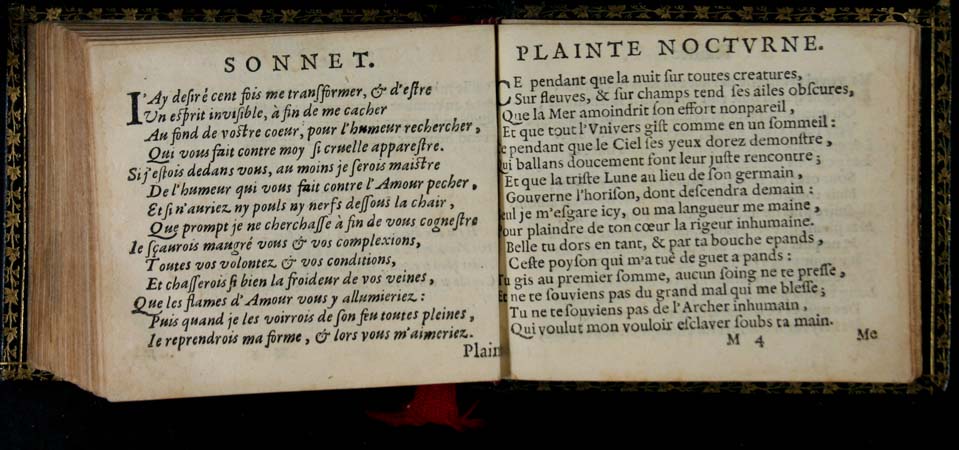 SONNET.
I'Ay desiré cent fois me transformer, & d'estre
Un esprit invisible, à fin de me cacher
Au fond de vostre coeur, pour l'humeur rechercher,
Qui vous fait contre moy si cruelle apparestre.
Si j'estois dedans vous, au moins je serois maistre
De l'humeur qui vous fait contre l'Amour pecher,
Et si n'auriez ny pouls ny nerfs dessous la chair,
Que prompt je ne cherchasse à fin de vous cognestre
Ie sçaurois maugré vous & vos complexions,
Toutes vos volontez & vos conditions,
Et chasserois si bien la froideur de vos veines,
Que les flames d'Amour vous y allumieriez:
Puis quand je les voirrois de son feu toutes pleines,
Ie reprendrois ma forme, & lors vous m'aimeriez.
Plain
PLAINTE NOCTVRNE.
CE pendant que la nuit sur toutes creatures,
Sur fleuves, & sur champs tend ses ailes obscures,
Que la Mer amoindrit son effort nonpareil,
Et que tout l'Vnivers gist comme en un sommeil:
Ce pendant que le Ciel ses yeux dorez demonstre,
Qui ballans doucement font leur juste rencontre;
Et que la triste Lune au lieu de son germain,
Gouverne l'horison, dont descendra demain:
Seul je m'esgare icy, ou ma langueur me maine,
Pour plaindre de ton cœur la rigeur inhumaine.
Belle tu dors en tant, & par ta bouche epands,
Ceste poyson qui m'a tué de guet a pands:
Tu gis au premier somme, aucun soing ne te presse,
Et ne te souviens pas du grand mal qui me blesse;
Tu ne te souviens pas de l'Archer inhumain,
Qui voulut mon vouloir esclaver soubs ta main.
M 4
Me